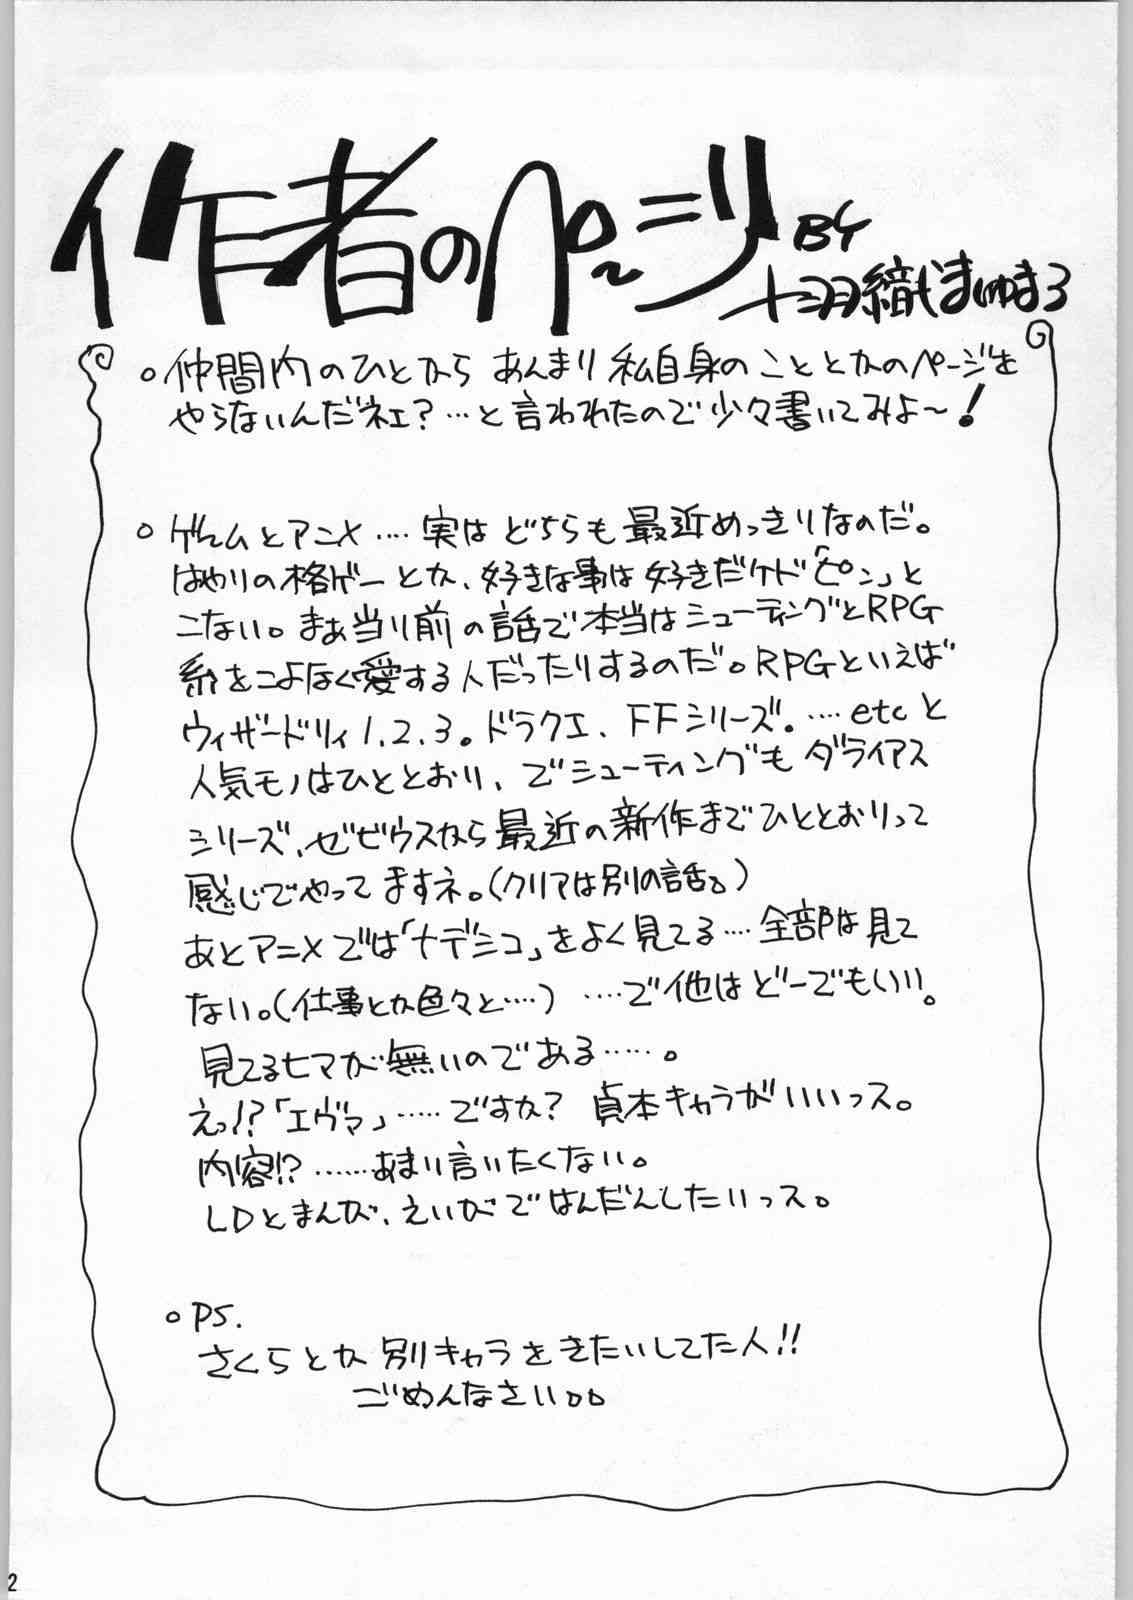 作者のペ～ジ BY
十羽織ましゅまろ
○仲間内のひとから あんまり 私自身のこととかのページを
やらないんだネェ?…と言われたので少々書いてみよ〜!
○ゲームとアニメ…. 実は どちらも 最近めっきりなのだ。
はやりの格ゲーとか、好きな事は好きだケド「ピン」と
こない。まぁ当り前の話で本当はシューティングとRPG
系をこよなく愛する人だったりするのだ。RPGといえば
ウィザードリィ1.2.3。ドラクエ、FFシリーズ。….etcと
人気モノはひととおり、でシューティングもダライアス
シリーズ、ゼビウスから最近の新作までひととおりって
感じでやってますネ。(クリアは別の話。)
あとアニメでは「ナデシコ」をよく見てる…. 全部は見て
ない。(仕事とか色々と….) ….で他はどーでもいい。
見てるヒマが無いのである…..。
えっ!?「エヴァ」…..ですか? 貞本キャラがいいっス。
内容!? ……あまり言いたくない。
LDとまんが、えいがではんだんしたいっス。
○PS.
さくらとか 別キャラをきたいしてた人!!
ごめんなさい。。
2